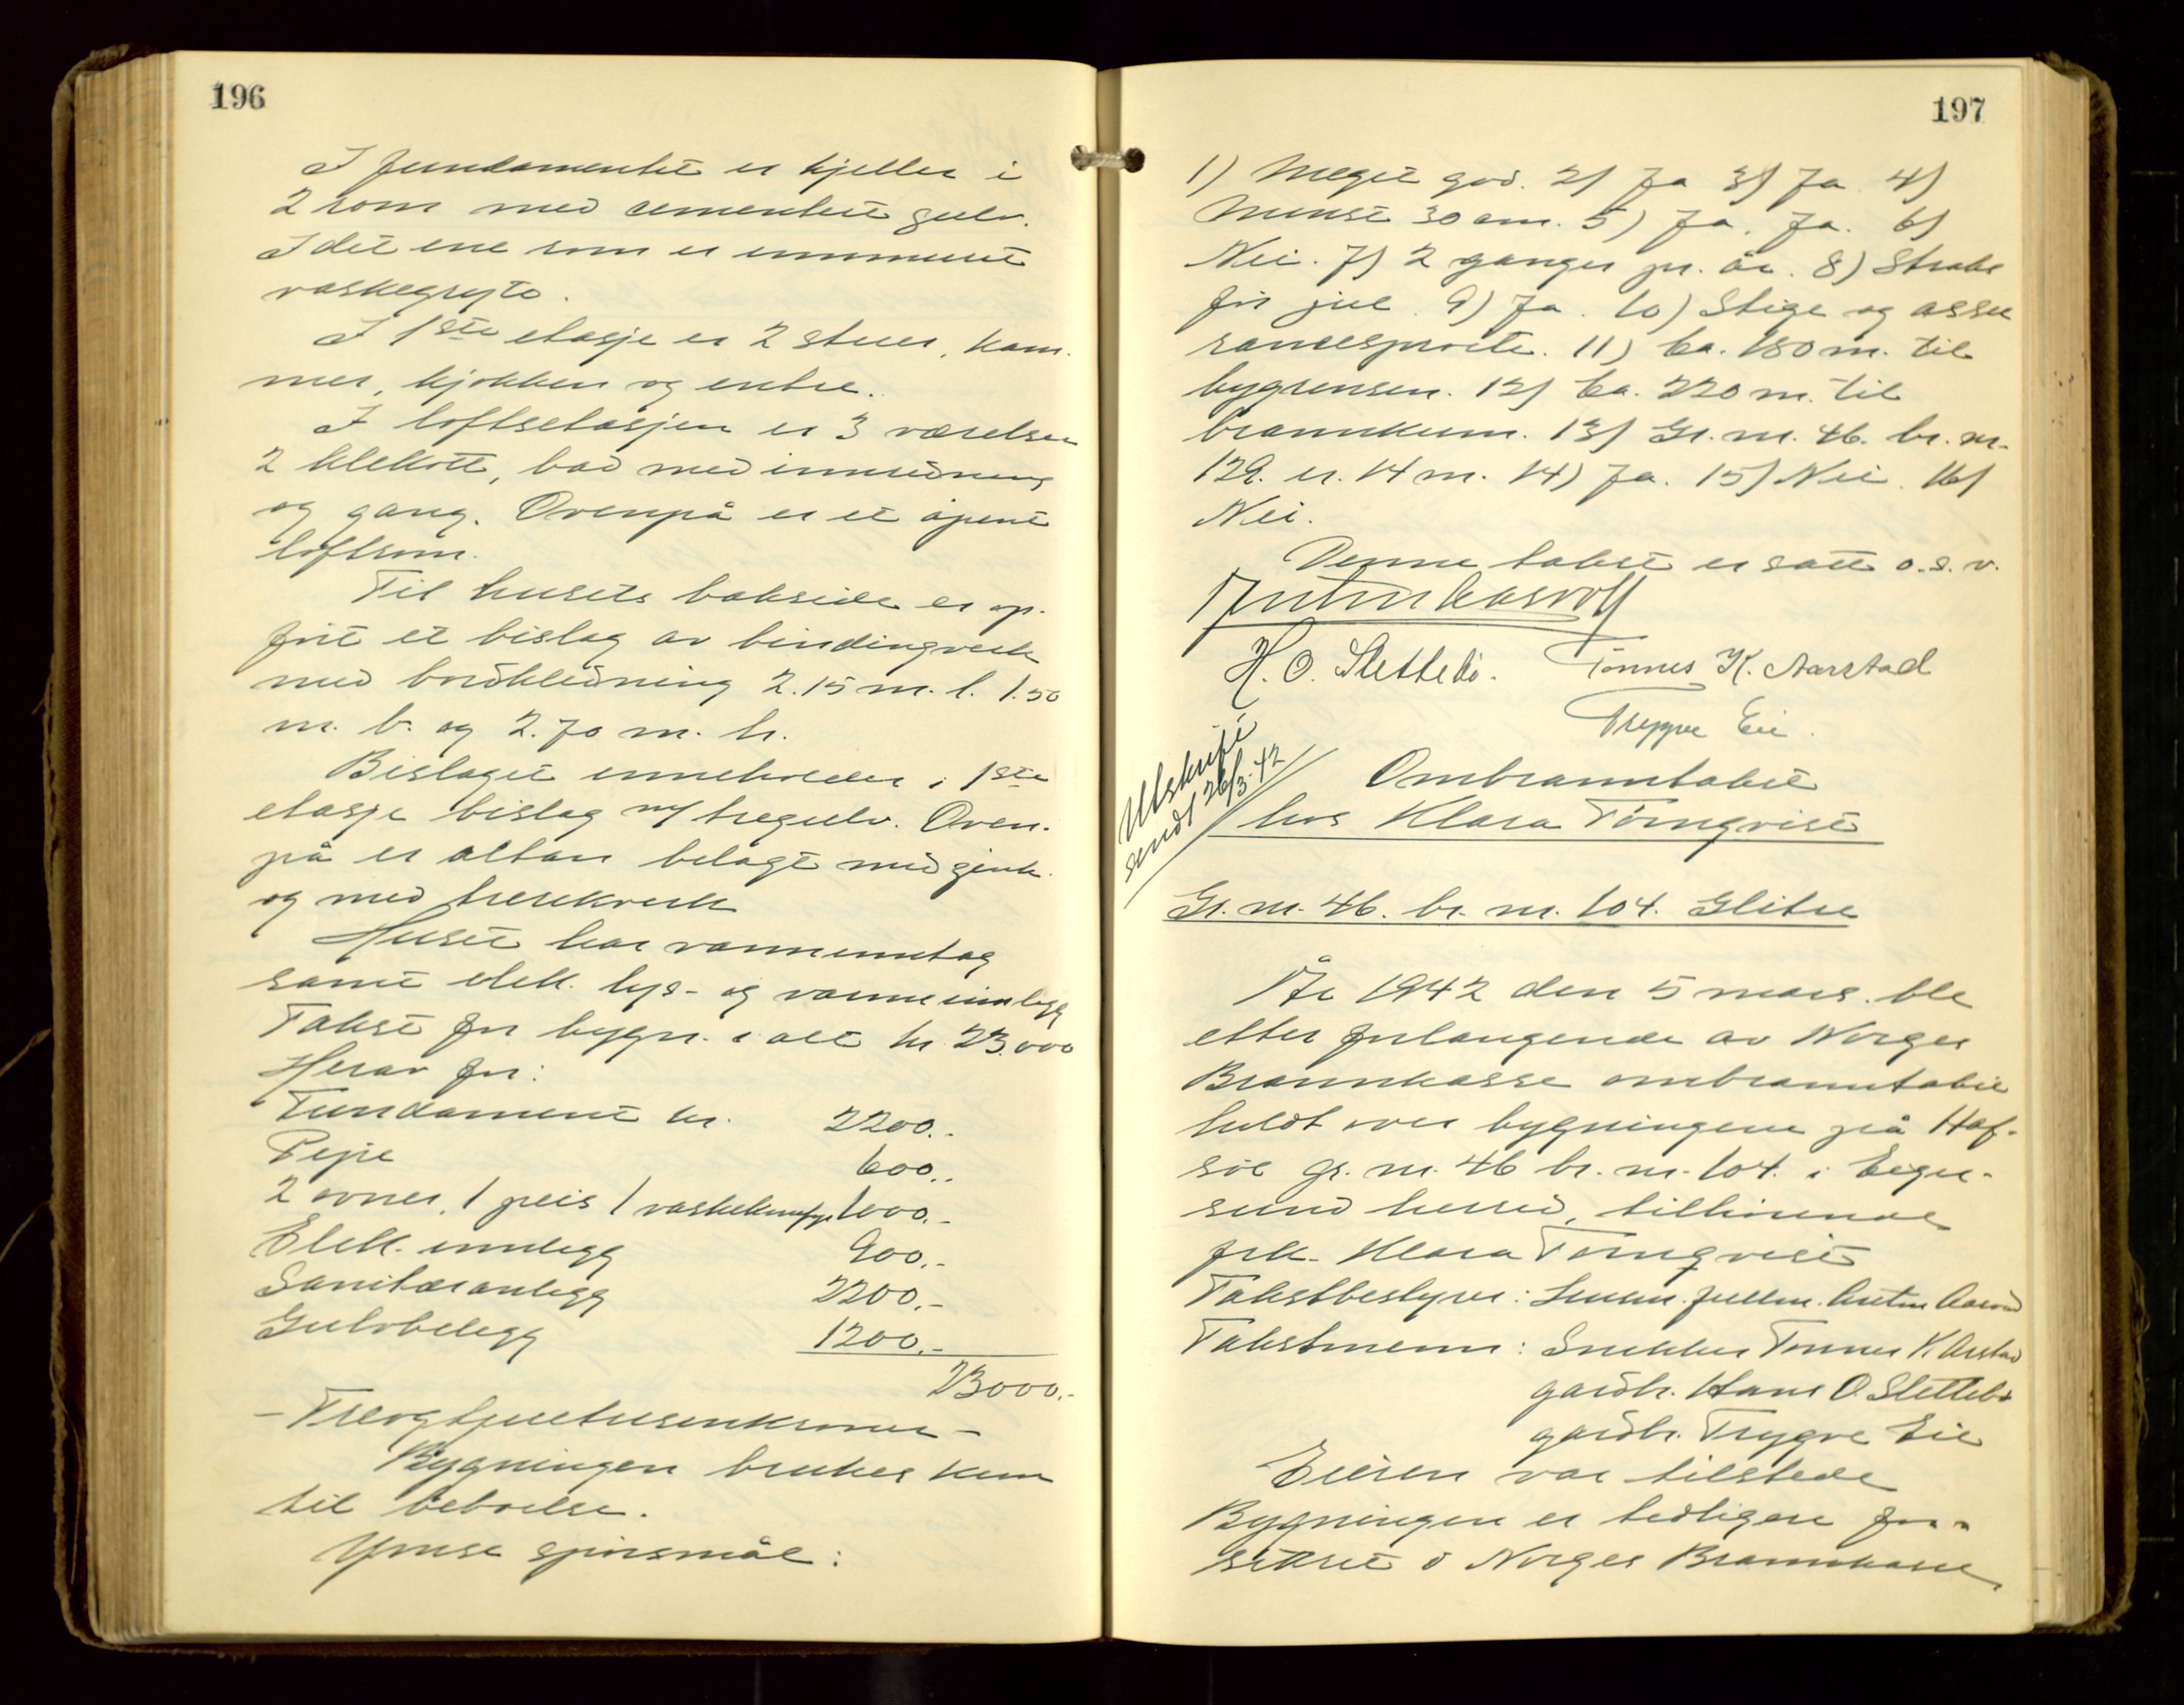 196
I fundamentet er kjeller i
2 rom med cementert gulv.
I det ene rom er innmuret
vaskegryte.
I 1ste etasje er 2 stuer, kam-
mer, kjøkken og entre.
I loftsetasjen er 3 værelser
2 klekott, bad med innredning
og gang. Ovenpå er et åpent
loftsrom.
Til husets bakside er op-
ført et bislag av bindingverk
med bordkledning 2.15 m. l. 1.50
m. b. og 2.70 m. h.
Bislaget inneholder i 1ste
etasje bislag m/ tregulv. Oven-
på er altan belagt med zink
og med trerekverk
Huset har vanninntag
samt elek. lys- og varmeinnlegg
Takst for bygn. i alt kr. 23.000
Herav for:
Fundament kr. 2200.-
Pipe 600.-
2 ovner, 1 peis 1 vaskekum 1000.-
Elek. innlegg 900.-
Sanitæranlegg 2200.-
Gulvbelegg 1200.-
23000.-
- Treogtjuetusenkroner -
Bygningen brukes kun
til beboelse.
Ymse spørsmål:
197
1) Meget god. 2) Ja 3) Ja. 4)
Minst 30 cm. 5) Ja. Ja. 6)
Nei. 7) 2 ganger pr. år. 8) Straks
før jul. 9) Ja. 10) Stige og assu
ransesprøite. 11) Ca. 180 m. til
bygrensen. 12) Ca. 220 m. til
brannkum. 13) Gr. nr. 46. br. nr.
129. er. 14 m. 14) Ja. 15) Nei. 16)
Nei.
Denne takst er satt o. s. v.
Anton Aasvold
H. O. Slettebø. Tønnes K. Aarstad
Trygve Eie.
Utskrift
sendt 26/3.42
Ombranntakst
hos Klara Törnqvist
Gr. nr. 46. br. nr. 104. Glitre
År 1942 den 5 mars. ble
etter forlangende av Norges
Brannkasse ombranntakst
holdt over bygningene på Haf-
søe gr. nr. 46 br. nr. 104. i Eiger-
sund herred, tilhørende
frk. Klara Törnqvist
Takstbestyrer: Lensm. fullm. Anton Aasvold
Takstmenn: Snekker Tønnes K. Arstad
gardbr. Hans O. Slettebø
gardbr. Trygve Eie
Eieren var tilstede
Bygningen er tidligere for-
sikret i Norges Brannkasse